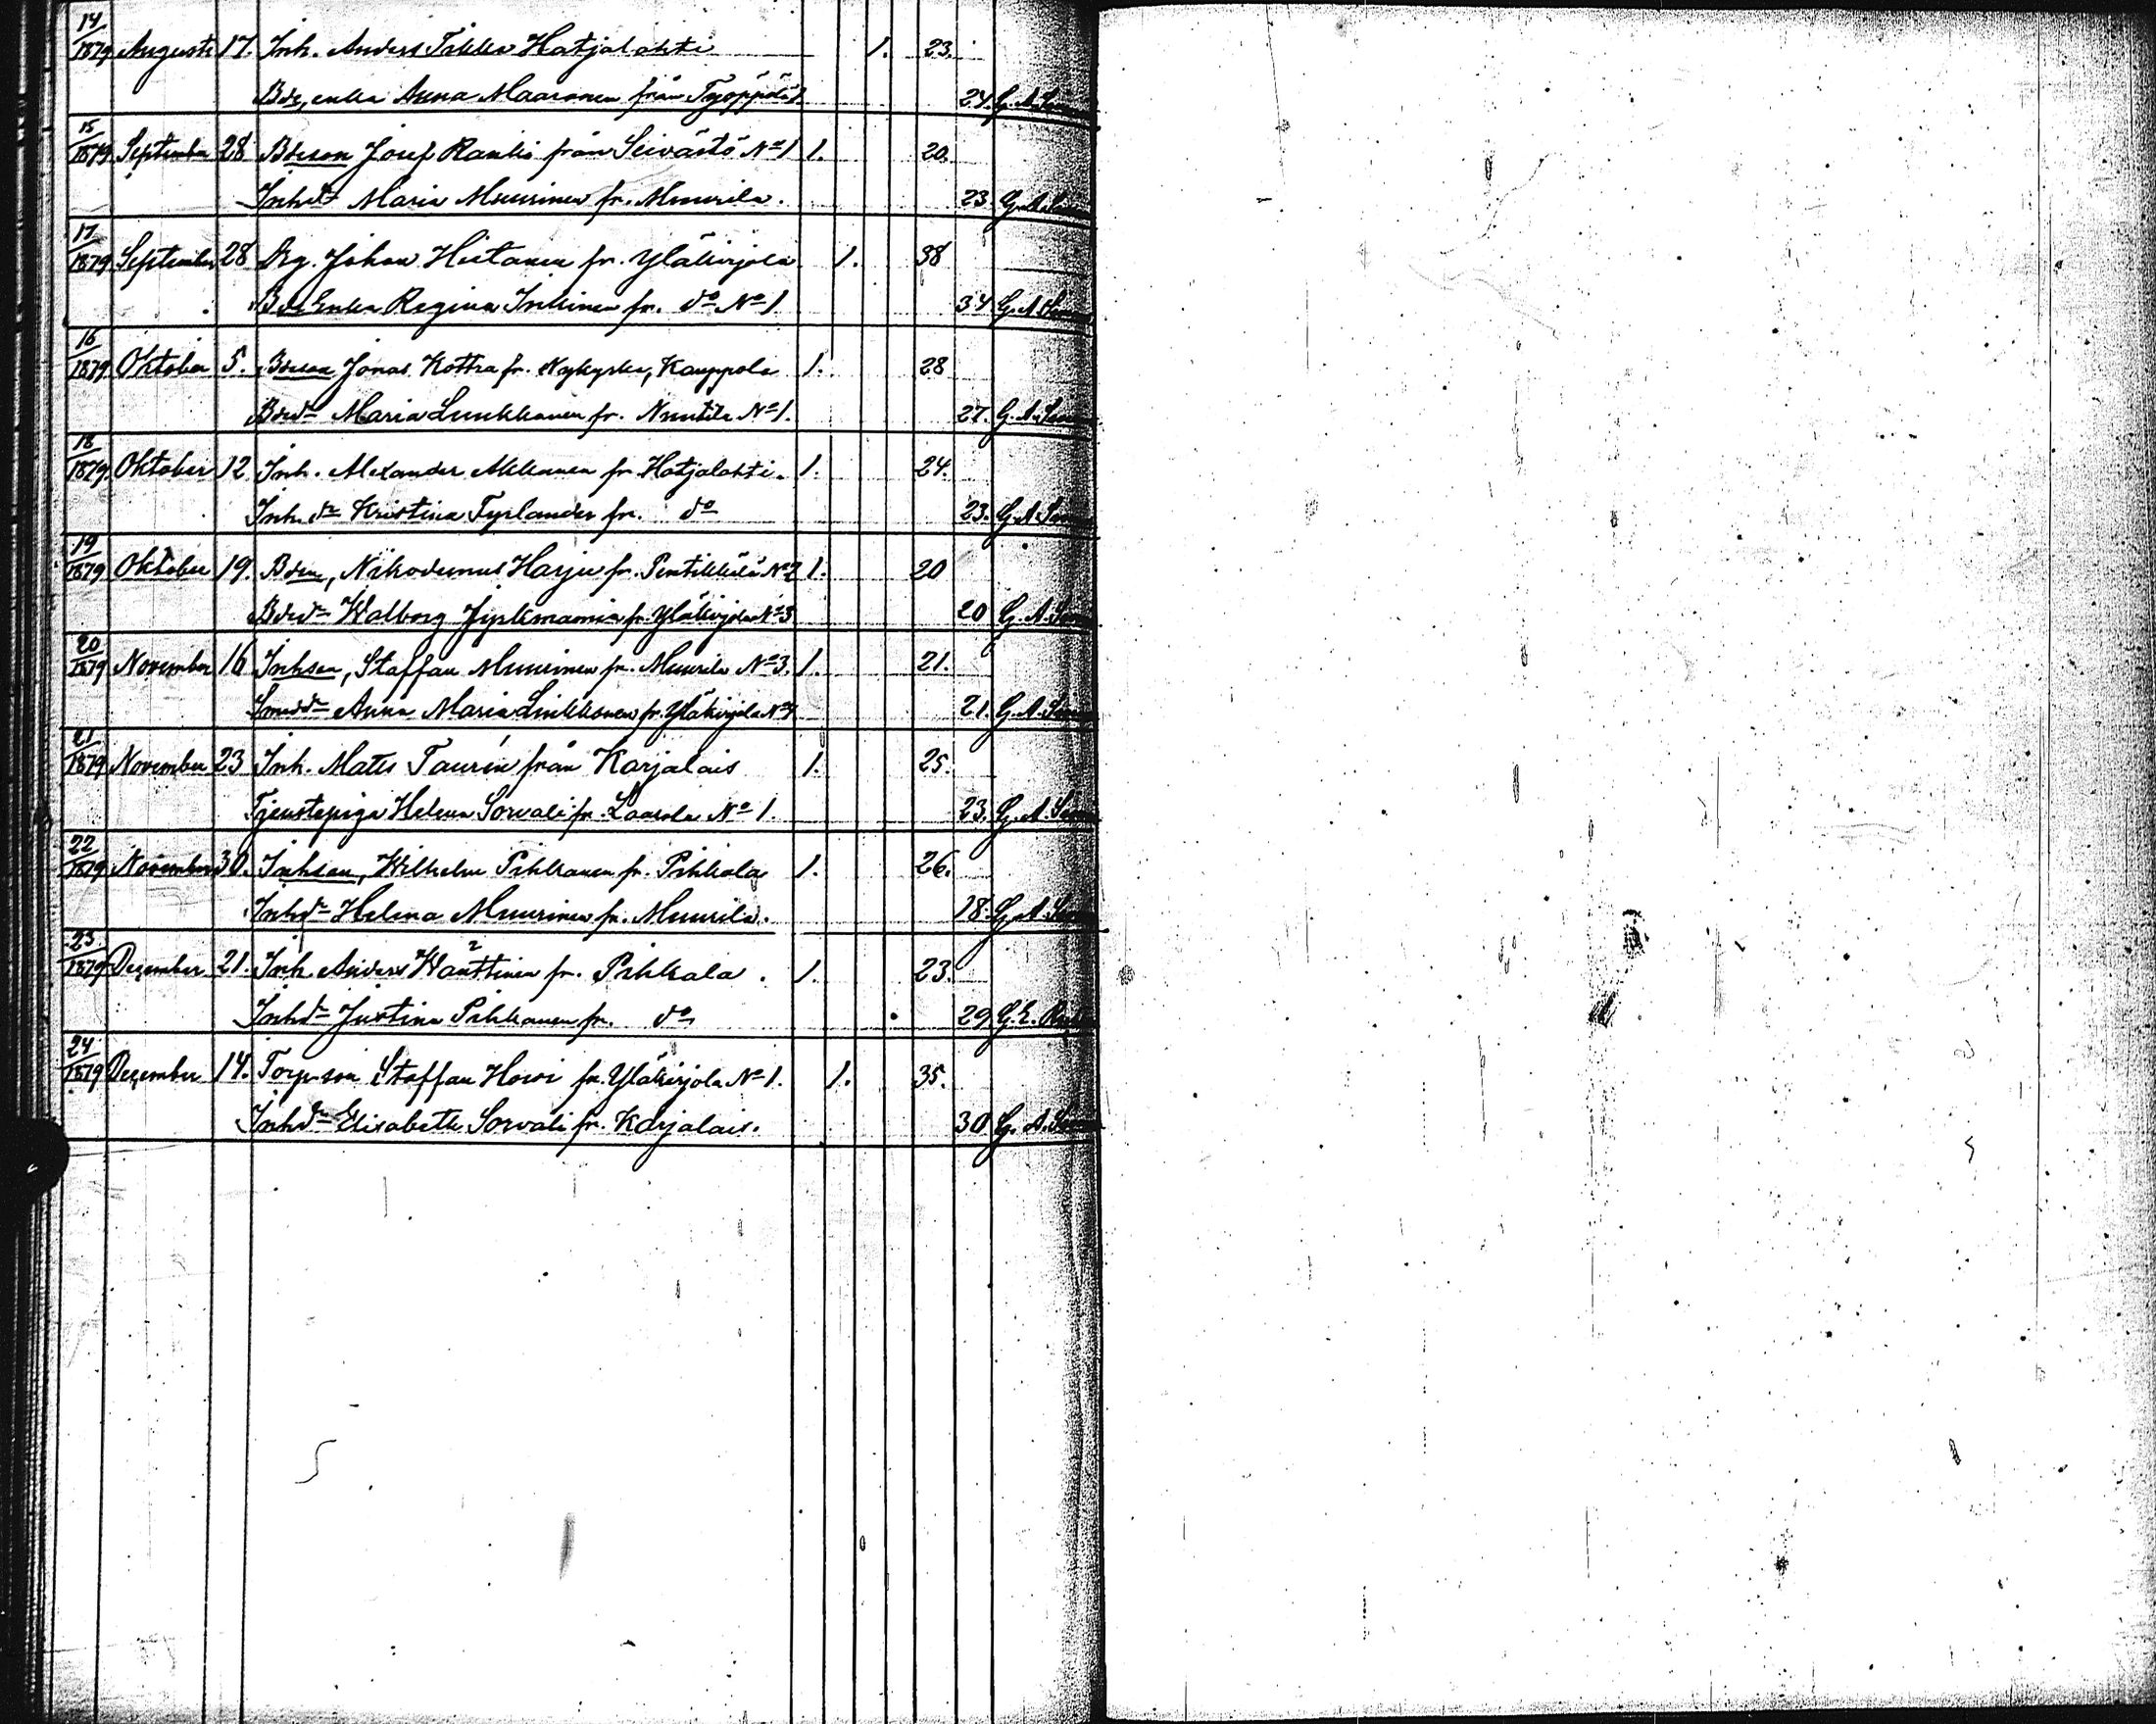 14/1879 Augusti 17. Inh. Anders Pikka Hatjalahti 1. 23.
Bde, enka Anna Maaronen från Tyoppölä 24. G. A.
15/1879 September 28 Bdeson Josef Ranki från Seivästö No 1 1. 20.
Inhdr Maria Muurinen fr. Muurila. 23. G. A.
17/1879 September 28 Drg. Johan Hietanen fr. Yläkirjola 1. 38
Bde Enka Regina Inkinen fr. do No 1. 34 G. A.
16/1879 Oktober 5. Bdeson Jonas Kottra fr. Nykyrka, Kauppola 1. 28
Bdedr Maria Luukkanen fr. Nuutila No 1. 27. G. A.
18/1879. Oktober 12 Inh. Alexander Akkanen fr. Hatjalahti. 1. 24.
Inh. dr Kristina Fyrlander fr. do 23. G. A.
19/1879 Oktober 19. Bden, Nikodemus Harju fr. Penttikkälä No 2 1. 20
Bdedr Walborg fr. Yläkirjola No 3 20 G. A.
20/1879 November 16 Inhson, Staffan Muurinen fr. Muurila No 3. 1. 21.
Smeddr Anna Maria Linkkonen fr. Yläkirjola No 4 21. G. A.
21/1879 November 23 Inh. Mats Taurén från Karjalais 1. 25.
Tjenstepiga Helena Sorvali fr. Laasola No 1. 23. G. A.
22/1879 November 30. Inhson, Wilhelm Pihkanen fr. Pihkala 1. 26.
Inhdr Helena Muurinen fr. Muurila. 18. G. A.
23/1879 Dezember 21. Inh. Anders Wanttinen fr. Pihkala. 1. 23.
Inhdr Justina Pihkanen fr. do 29. G. E.
24/1879 Dezember 14. Torp-son Staffan Howi fr. Yläkirjola No 1. 1. 35.
Inhdr Elisabeth Sorvali fr. Karjalais. 30 G. A.